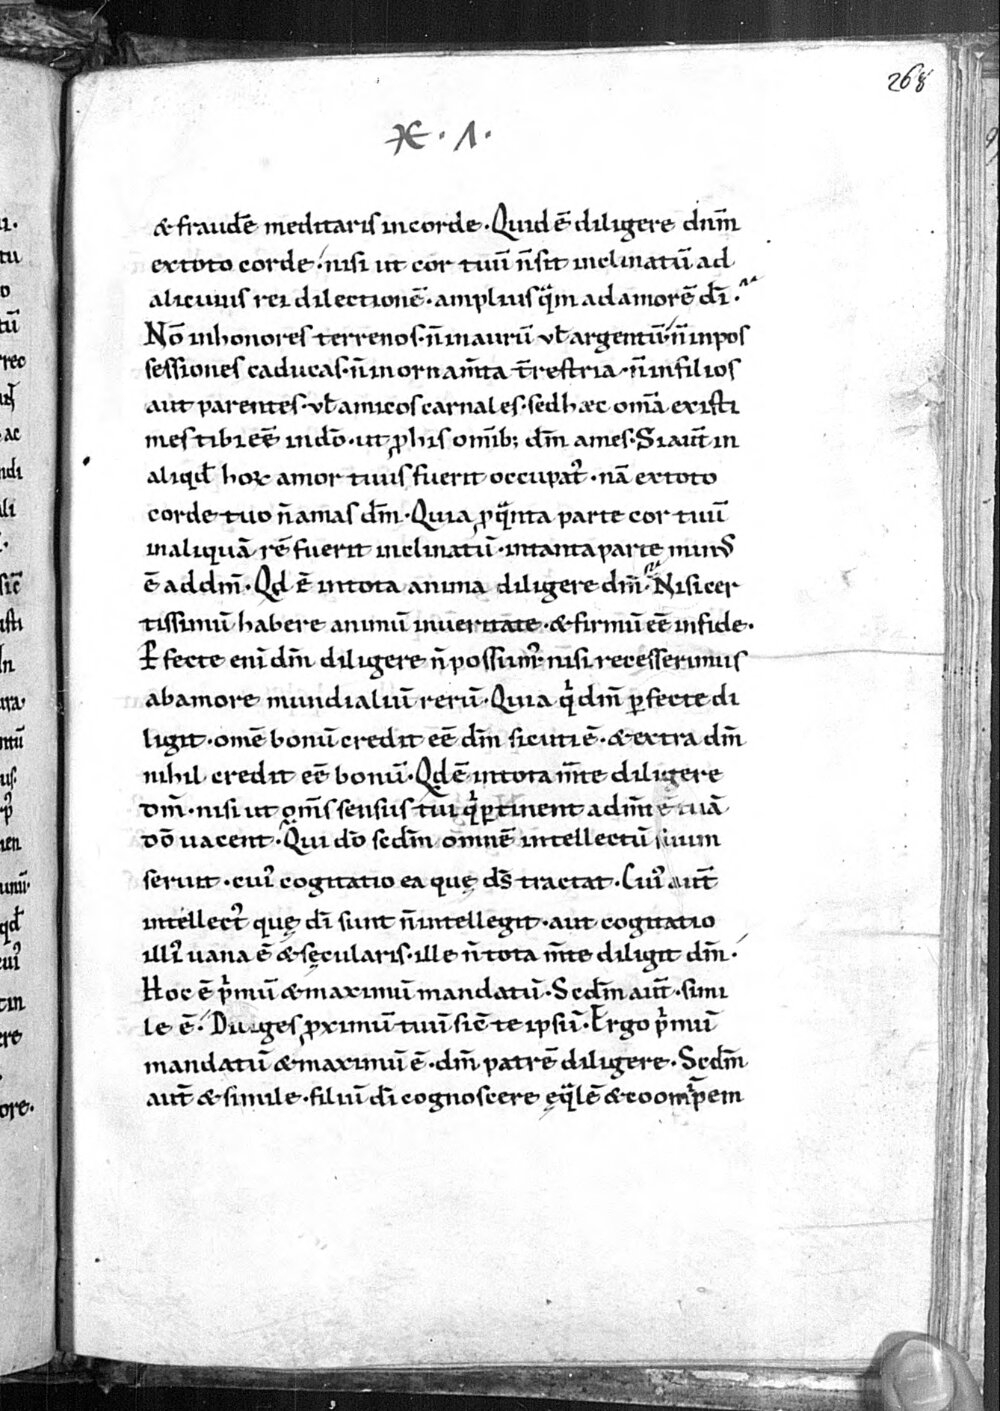 268
ӾЄ · Λ ·
& fraudē meditaris incorde · Quid ē diligere dnm̄
extoto corde · nisi ut cor tuū n̄ sit inclinatū ad
alicuius rei dilectionē · amplius qȧm ad amorē dī ·
Nō inhonores terrenos · n̄ inaurū vł argentū · n̄ inpos
sessiones caducas · n̄ in ornam̄ta t̄restria · n̄ infilios
aut parentes · vł amicos carnales · sed hæc om̄a existi
mes tibi eē̄ indō · ut p̱ his om̄ib; dm̄ ames · Si aut̄ in
aliqđ hoꝝ amor tuus fuerit occupat᷒ · nā extoto
corde tuo n̄ amas dm̄ · Quia ꝓ qᵃnta parte cor tuū
inaliquā rē fuerit inclinatū · intanta parte min᷒
ē addm̄ · Qđ ē intota anima diligere dm̄ · Nisi cer
tissimū habere animū inueritate · & firmū eē̄ infide ·
Ꝑfecte eni dm̄ diligere n̄ possum᷒ · nisi recesserimus
abamore mundialiū rerū · Quia qⁱ dm̄ ꝑfecte di
ligit · omē bonū credit eē̄ dm̄ sicuti ē · & extra dm̄
nihil credit eē̄ bonū · Qđ ē intota m̄te diligere
dm̄ · nisi ut om̄s sensus tui qⁱ ꝑtinent ad m̄tē tuā
dō uacent · Qui dō scdm̄ omnē intellectū suum
seruit · cui᷒ cogitatio ea quę ds̄ tractat · Cui᷒ aut̄
intellect᷒ quę dī sunt n̄ intellegit · aut cogitatio
illi᷒ uana ē & sęcularis · ille n̄ tota m̄te diligit dm̄ ·
Hoc ē pⁱmū & maximū mandatū · Scdm̄ aut̄ · simi
le ē · Diliges ꝓximū tuū sic̄ te ipsū · Ergo pⁱmū
mandatū & maximū ē · dm̄ patrē diligere · Scdm̄
aut̄ & simile · filiū dī cognoscere ęqᵃlē & coomp̄em